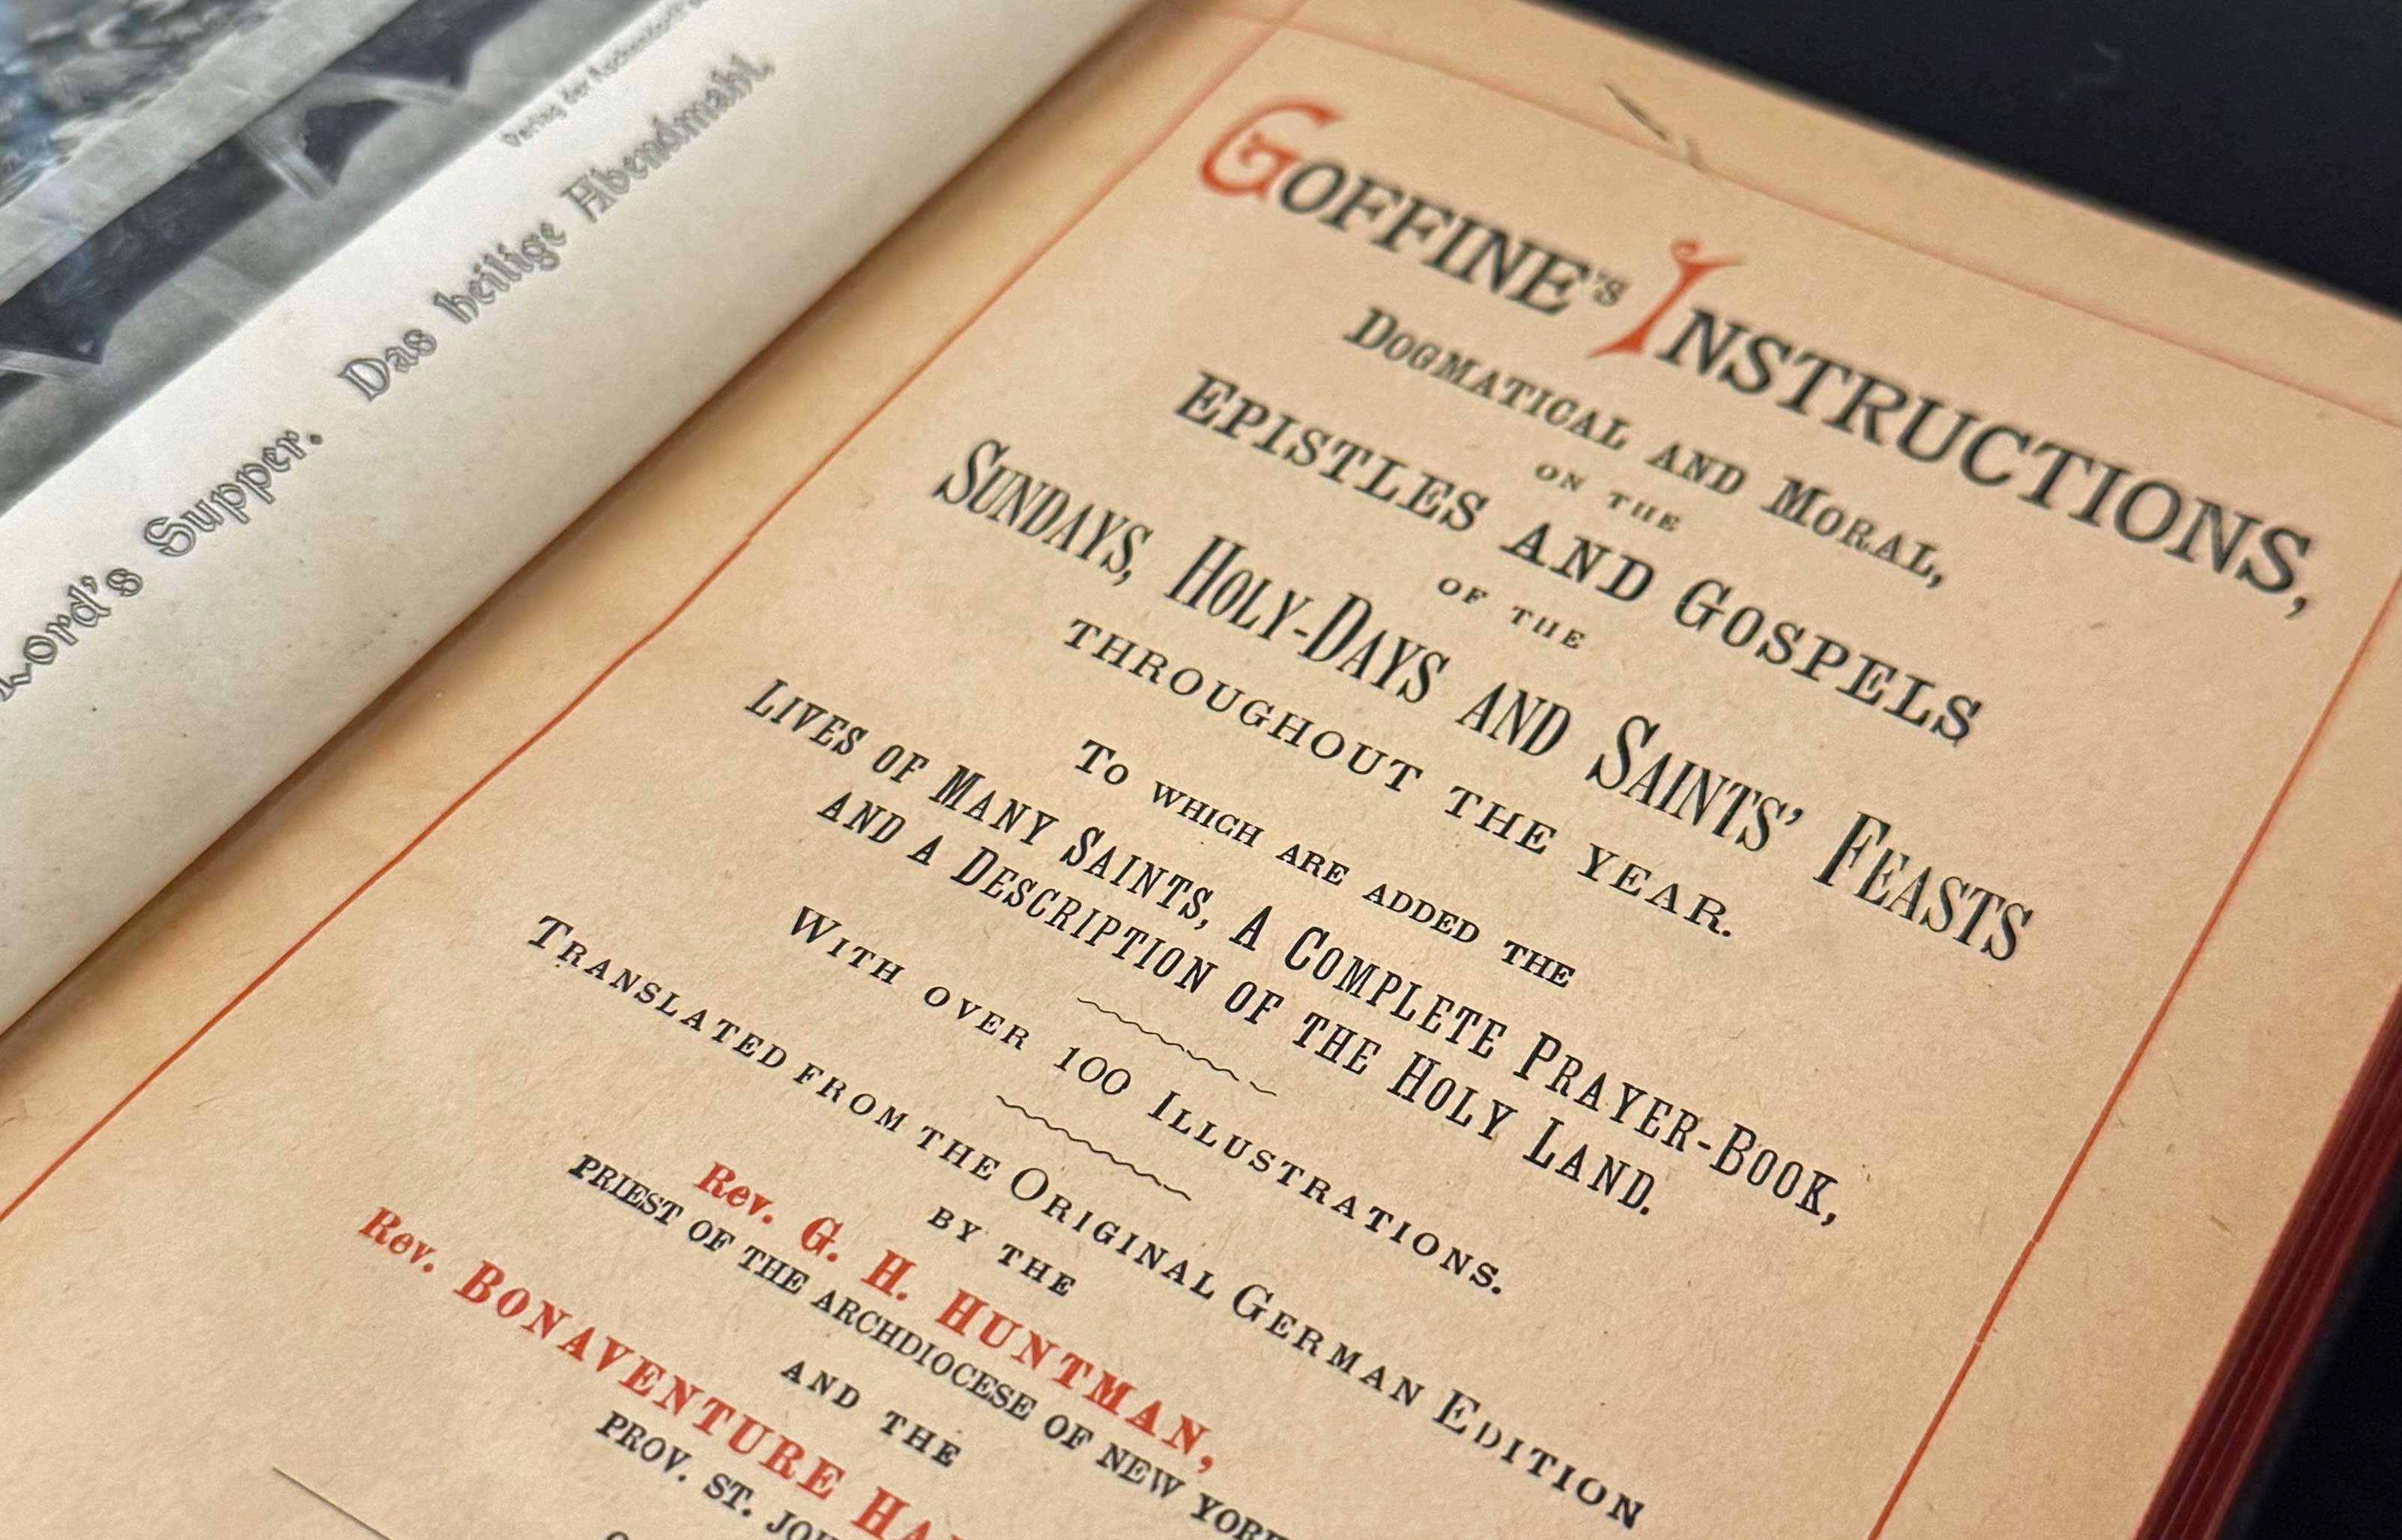 Lord's Supper. Das heilige Abendmahl.
Verlag der
GOFFINE'S INSTRUCTIONS,
DOGMATICAL AND MORAL,
ON THE
EPISTLES AND GOSPELS
OF THE
SUNDAYS, HOLY-DAYS AND SAINTS' FEASTS
THROUGHOUT THE YEAR.
TO WHICH ARE ADDED THE
LIVES OF MANY SAINTS, A COMPLETE PRAYER-BOOK,
AND A DESCRIPTION OF THE HOLY LAND.
WITH OVER 100 ILLUSTRATIONS.
TRANSLATED FROM THE ORIGINAL GERMAN EDITION
BY THE
Rev. G. H. HUNTMAN,
PRIEST OF THE ARCHDIOCESE OF NEW YORK
AND THE
Rev. BONAVENTURE
PROV. ST.